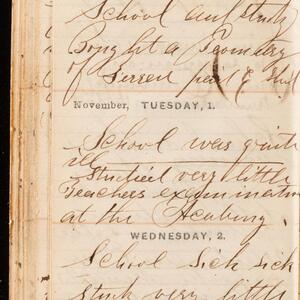 School
Bought a
of
November, TUESDAY, 1.
School was quite
ill
studied very little
Teachers examination
at the Academy
WEDNESDAY, 2.
School Sick sick
very little